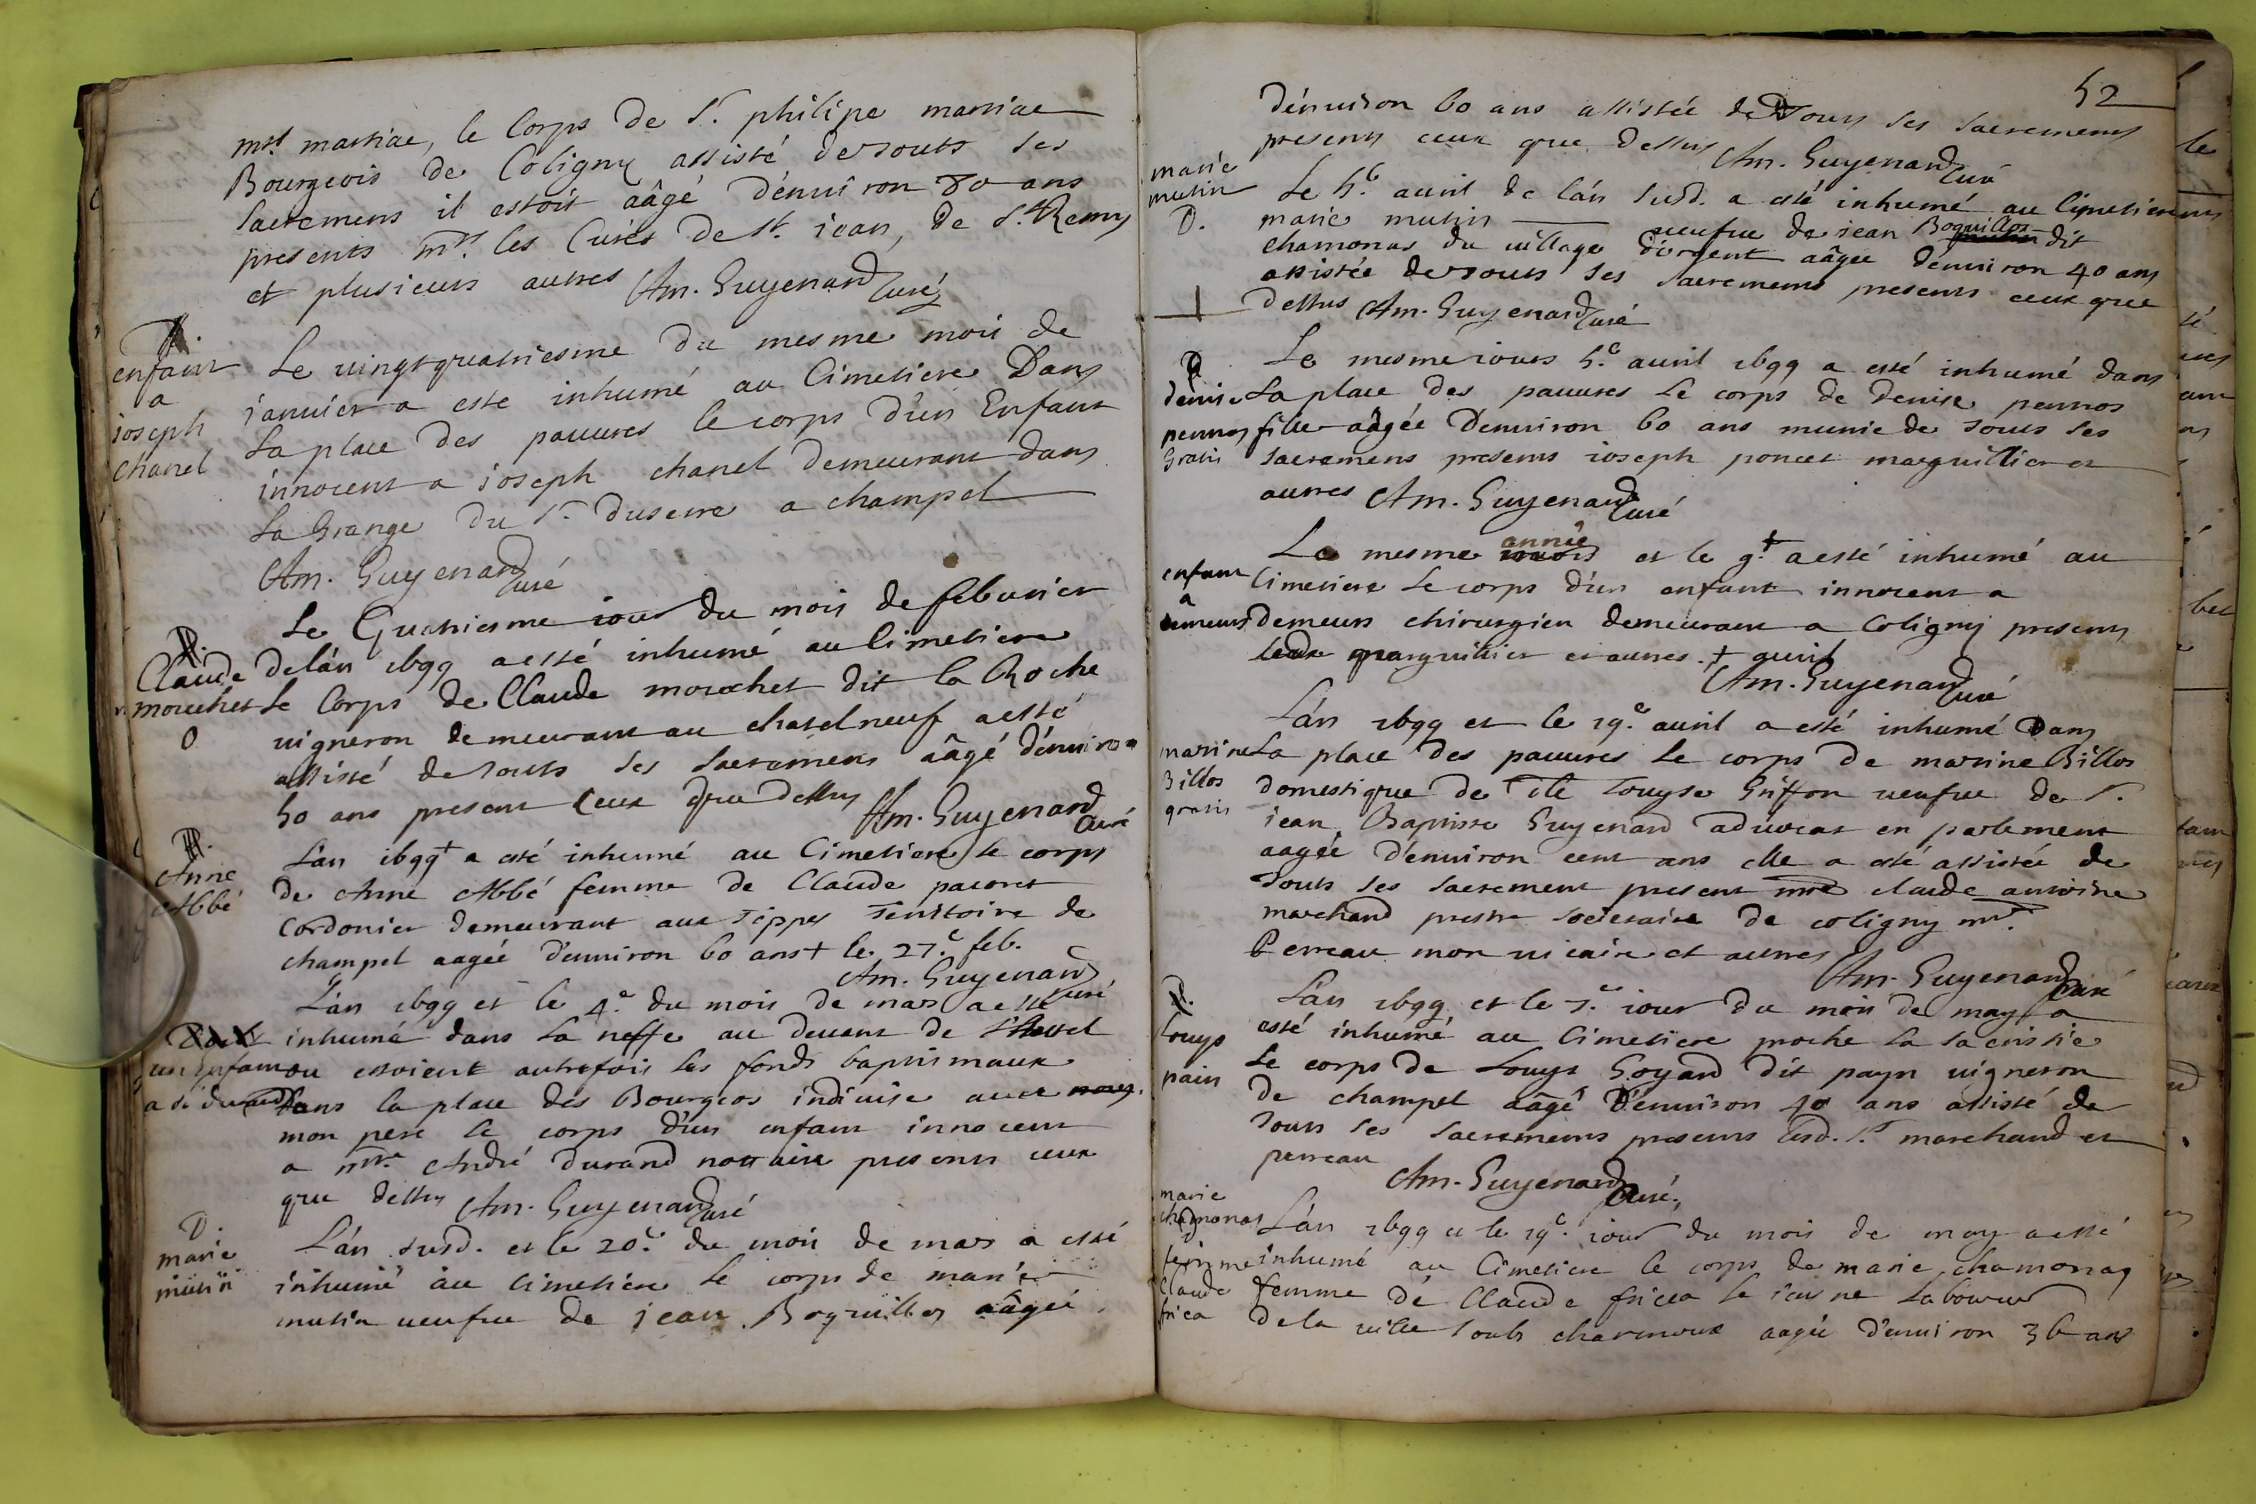 mrs. martiae, le Corps de Sr. philipe martiae
Bourgeois de Coligny assisté de touts ses
sacremens il estoit aâgé d'enuiron 80 ans
presents mrs. les Curés de St. jean, de St. Remy
et plusieurs autres Am. Guyenard Curé
enfant
a
joseph
chanel
Le uingtquatriesme du mesme mois de
januier a esté inhumé au Cimetiere Dans
La place des pauures le corps d'un Enfant
innocent a joseph chanel demeurant dans
La Grange du Sr. duserre a champel
Am. Guyenard Curé
D.
Claude
mouchet
O
Le Quatriesme iour du mois de feburier
de lán 1699 a esté inhumé au Cimetiere
le Corps de Claude mouchet dit la Roche
uigneron demeurant au chatelneuf a esté
assisté de touts ses sacremens aâgé d'enuiron
50 ans present Ceux que dessus Am. Guyenard Curé
D.
Anne
Abbé
Lán 1699 + a esté inhumé au Cimetiere le corps
de Anne Abbé femme de Claude pacoret
Cordonier demeurant aux Tippes Territoire de
champel aagée d'enuiron 60 ans + le 27e. feb.
Am. Guyenard Curé
un Enfant
a sr durand
Lán 1699 et le 4e. du mois de mars a esté
inhumé dans la neffe au deuant de l'Autel
ou estoient autrefois les fonds baptismaux
Dans la place des Bourgeos indiuise auec
mon pere le corps d'un enfant innocent
a mre. André durand nottaire presents ceux
que dessus Am. Guyenard Curé
D.
marie
mutin
Lán susd. et le 20e. du mois de mars a esté
inhumé au Cimetiere le corps de marie
mutin ueufue de jean Boquillos aâgée
52
d'enuiron 60 ans assistée de Touts ses sacremens
presents ceux que dessus Am. Guyenard Curé
marie
mutin
D.
Le 5e. auril de lán susd. a esté inhumé au Cimetiere
marie mutin ueufue de jean Boquillos dit
chamonas du uillage d'orgent aâgée d'enuiron 40 ans
assistée de touts ses sacremens presents ceux que
dessus Am. Guyenard Curé
D
denise
pennos
Gratis
Le mesme iours 5e. auril 1699 a esté inhumé dans
La place des pauures Le corps de Denise pennos
fille aâgée D'enuiron 60 ans munie de touts ses
sacremens presents joseph poncet marguillier et
autres Am. Guyenard Curé
enfant
a
demeurs
Le mesme année et le 9. + a esté inhumé au
Cimetiere Le corps d'un enfant innocent a
demeurs chirurgien demeurant a Coligny presents
marguillier et autres. + auril
Am. Guyenard Curé
martine
Billos
gratis
Lán 1699 et le 19e. auril a esté inhumé Dans
La place des pauures Le corps de martine Billos
domestique de Louyse Griffon ueufue de Sr.
jean Baptiste Guyenard aduocat en parlement
aagée d'enuiron cent ans elle a esté assistée de
Touts ses sacrement present mre claude antoine
marchand prestre societaire de coligny mr.
Perreau mon uicaire et autres
Am. Guyenard Curé
D.
Louys
pain
Lán 1699 et le 7e. iour du mois de may a
esté inhumé au Cimetiere proche la sacristie
Le corps de Louys Goyard dit payn uigneron
de champel aâgé D'enuiron 40 ans assisté de
Touts ses sacremens presents lesd. srs marchand et
perreau
Am. Guyenard Curé,
marie
chamonas
femme
Claude
frica
Lán 1699 et le 19e. iour du mois de may a esté
inhumé au Cimetiere le corps de marie chamonas
femme de Claude frica le jeusne Laboureur
de la uille soubs charmoux aagée d'enuiron 36 ans